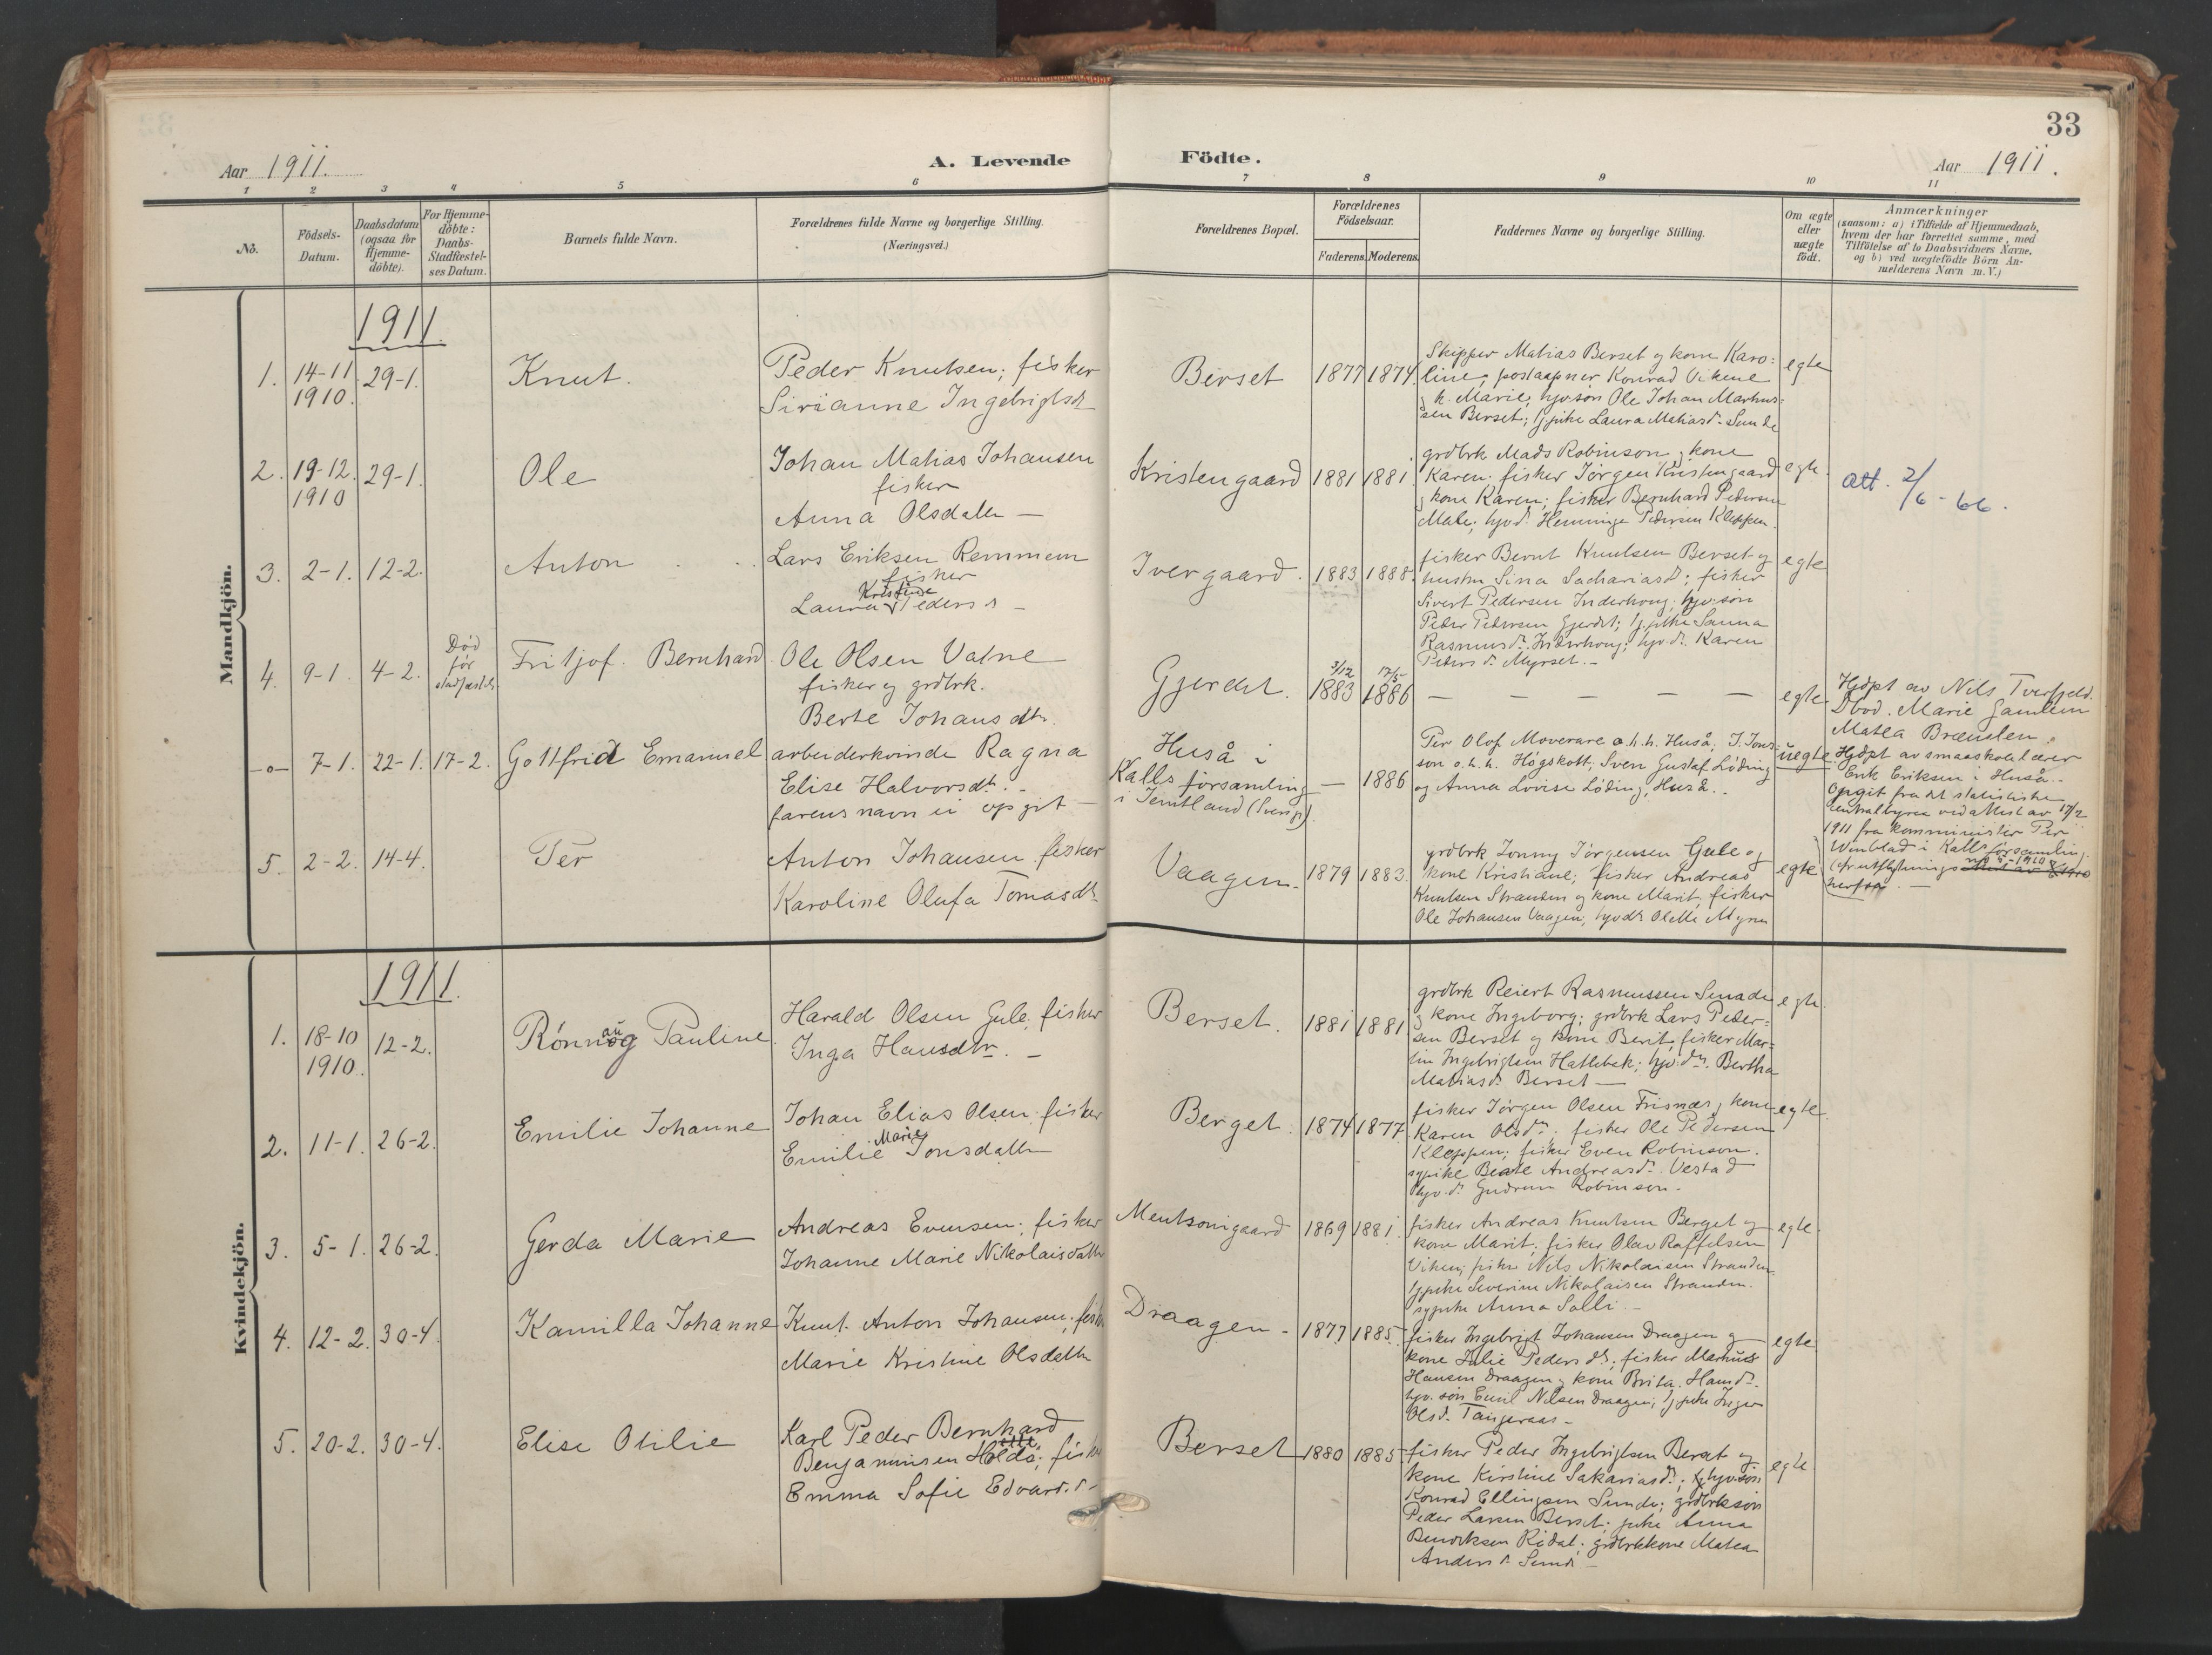 33
Aar 1911.
A. Levende
Födte.
Aar 1911.
1 2 3 4 5 6 7 8 9 10 11
No.
Födsels-
Datum.
Daabsdatum
(ogsaa for
Hjemme-
döbte).
For Hjemme-
döbte:
Daabs-
Stadfæstel-
ses Datum.
Barnets fulde Navn.
Forældrenes fulde Navne og borgerlige Stilling.
(Næringsvei.)
Forældrenes Bopæl.
Forældrenes
Födselsaar.
Faderens. Moderens.
Faddernes Navne og borgerlige Stilling.
Om ægte
eller
uægte
födt.
Anmærkninger
(saasom: a) i Tilfælde af Hjemmedaab,
hvem der har forrettet samme, med
Tilföielse af to Daabsvidners Navne,
og b) ved uægtefödte Börn An-
melderens Navn m. V.)
Mandkjön.
1911.
1. 14-11 1910. 29-1.
Knut.
Peder Knutsen; fisker
Sirianne Ingebrigtsdt
Berset 1877 1874.
Skipper Matias Berset og kone Karo-
line; postaapner Konrad Vikene
k. Marie; hjv.søn Ole Johan Markus-
sen Berset; tj.pike Laura Matiasd. Sunde
egte
2. 19-12. 1910 29-1.
Ole
Johan Matias Johansen
fisker
Anna Olsdatter —
Kristengaard 1881 1881
grdbrk Mads Robinson, kone
Karen. fisker Jørgen Kristengaard
kone Karen; fisker Bernhard Pedersen
Male; hjvd. Hemminge Pedersen Kleppen.
egte.
att. 2/6 - 66.
3. 2-1. 12-2.
Anton
Lars Eriksen Remmem
fisker
Kristine
Laura Pedersd —
Ivergaard. 1883 1888.
fisker Bernt Knutsen Berset og
hustru Sina Sachariasd; fisker
Sivert Pedersen Inderhoug; hjv.søn
Peder Pedersen Gjerdet; tj.pike Sanna
Rasmusd. Inderhoug; hjv.d. Karen
Peders d. Myrset. —
egte
4. 9-1. 4-2.
Død
før
stadfæstels.
Fritjof. Bernhard
Ole Olsen Vatne
fisker og grdbrk.
Berte Johansdtr.
Gjerdet. 3/12 1883 17/5 1886
— — — — —
egte
Hjdpt av Nils Tverfjeld.
Dbvd. Marie Gamlem
Matea Brændsen.
-o- 7-1. 22-1. 17-2.
Gottfrid Emanuel
arbeiderkvinde Ragna
Elise Halvorsdt. —
farens navn ei opgit —
Huså i
Kalls församling
i Jemtland (Sverige)
— 1886
Per Olof Moverare o.h.h. Huså; J. Jons-
son o.h.h. Högskott; Sven Gustaf Löding
og Anna Lovise Löding, Huså. —
uegte.
Hjdpt av smaaskolelærer
Erik Eriksen i Huså. —
Opgit fra det statistiske
centralbyraa ved attest av 17/2
1911 fra komminister Per
Winblad i Kalls församling.
herfra. —
5. 2-2. 14-4.
Per
Anton Johansen fisker
Karoline Olufa Tomasdt
Vaagen. 1879 1883.
grdbrk Jonny Jørgensen Gule og
kone Kristiane; fisker Andreas
Knutsen Stranden og kone Marit; fisker
Ole Johansen Vaagen; hjvdt Olette Myren
egte
Kvindekjön.
1911.
1. 18-10 1910. 12-2.
Rönnaug Pauline
Harald Olsen Gule, fisker
Inga Hansdtr. —
Berset. 1881 1881
grdbrk Reiert Rasmussen Sunde
kone Ingeborg; grdbrk Lars Peder-
sen Berset og kone Berit; fisker Mar-
tin Ingebrigtsen Hatlebak; hjv.dtr. Bertha
Matiasd. Berset —
egte.
2. 11-1. 26-2.
Emilie Johanne
Johan Elias Olsen. fisker
Marie
Emilie Jonsdatter
Berget. 1874 1877.
fisker Jörgen Olsen Frisnæs, kone
Karen Olsdtr; fisker Ole Pedersen
Kleppen; fisker Even Robinson.
sypike Beate Andreasd. Vestad
hjv.d. Gudrun Robinson.
egte.
3. 5-1. 26-2.
Gerda Marie
Andreas Evensen; fisker
Johanne Marie Nikolaisdatter
Mentsonigaard 1869 1881.
fisker Andreas Knutsen Berget og
kone Marit; fisker Olav Roffelsen
Viken; fisker Nils Nikolaisen Stranden
tj.pike Severine Nikolaisen Stranden.
sypike Anna Solli —
egte.
4. 12-2. 30-4.
Kamilla Johanne
Knut. Anton Johansen. fisker
Marie Kristine Olsdatter
Draagen — 1877 1885.
fisker Ingebrigt Johansen Draagen og
kone Julie Peders dt; fisker Markus
Hansen Draagen, kone Brita Hansd.
hjv. søn Emil Nilsen Draagen; tj.pike Inger
Olsd. Tangeraas —
egte
5. 20-2. 30-4.
Elise Otilie
Karl Peder Bernhard
Benjaminsen Holde; fisker
Emma Sofie Edvard.d —
Berset 1880 1885.
fisker Peder Ingebrigtsen Berset og
kone Kirstine Sakariasdt; hjv.søn
Konrad Ellingsen Sunde; grdbrksøn
Peder Larsen Berset; pike Anna
Bendiksen Rödal; grdbrkkone Matea
Anders d. Sunde —
egte.